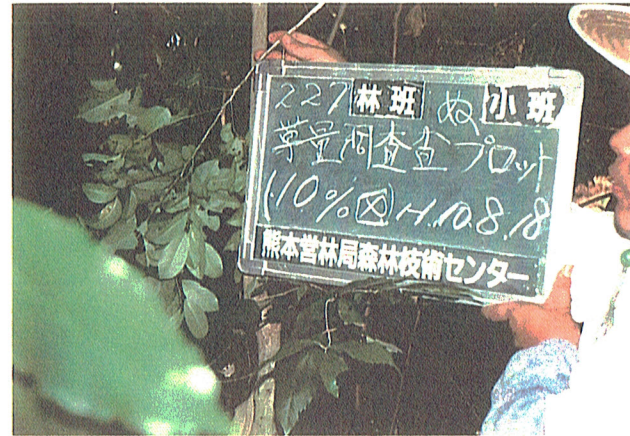 227 林班 ぬ 小班
草量調査プロット
(10%区) H.10.8.18
熊本営林局森林技術センター